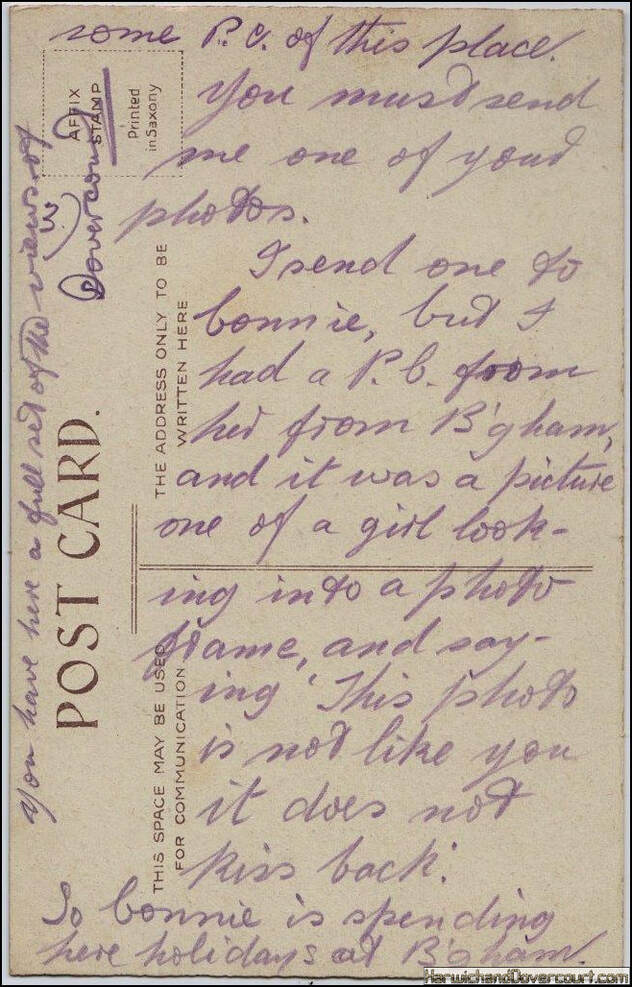 some P.C. of this place.
You must send
me one of your
photos.
I send one to
bonnie, but I
had a P.C. from
her from B'gham,
and it was a picture
one of a girl look-
ing into a photo
frame, and say-
ing 'This photo
is not like you
it does not
kiss back'.
So bonnie is spending
here holidays at B'gham.
You have here a full set of the views of
Dovercourt
POST CARD.
THE ADDRESS ONLY TO BE
WRITTEN HERE
THIS SPACE MAY BE USED
FOR COMMUNICATION
AFFIX
STAMP
Printed
in Saxony
HarwichandDovercourt.com